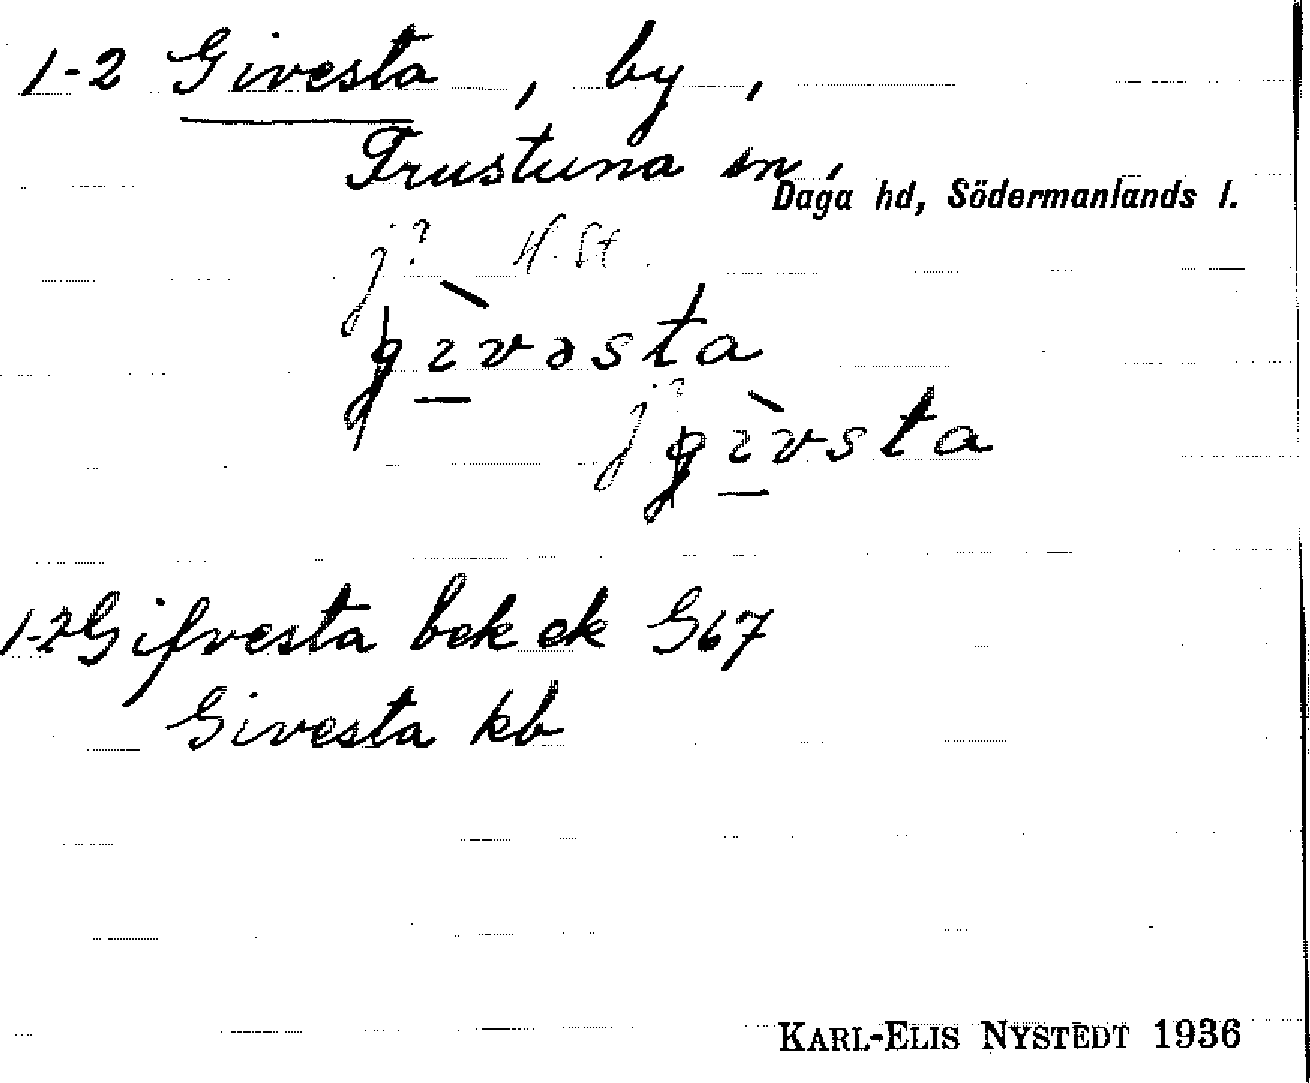 1-2 Givesta, by,
Frustuna sn,
Daga hd, Södermanlands l.
j? H. St.
gìvəsta
j? gìvsta
1-2 Gifvesta bek ek G67
Givesta kb
KARL-ELIS NYSTEDT 1936